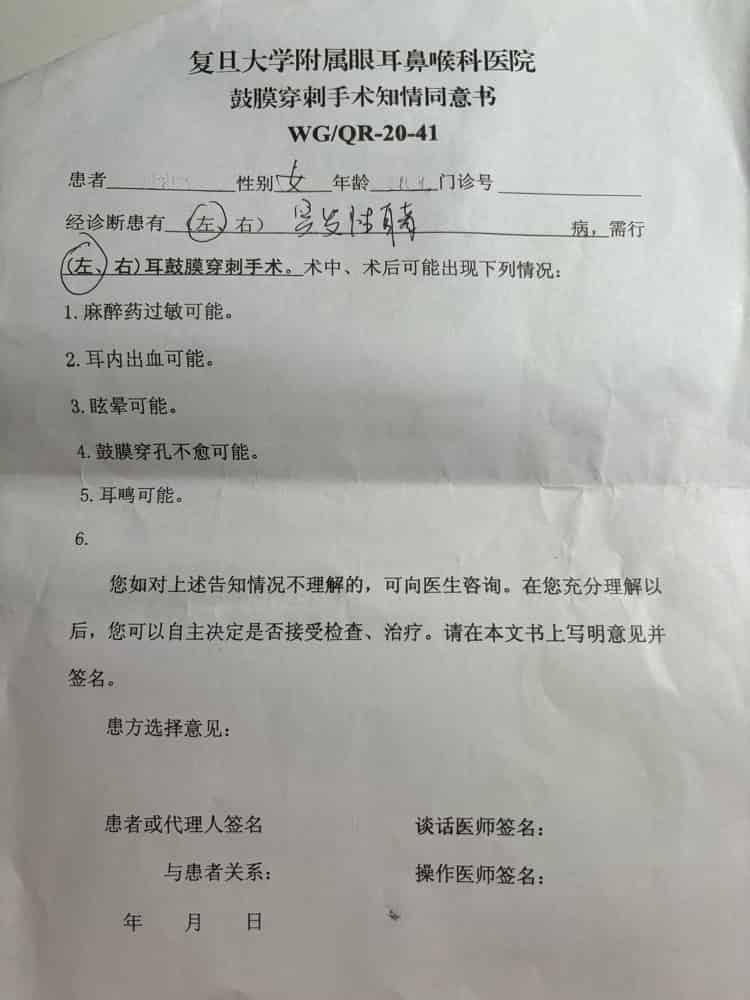 复旦大学附属眼耳鼻喉科医院
鼓膜穿刺手术知情同意书
WG/QR-20-41
患者 性别 女 年龄 门诊号
经诊断患有 (左、右) 突发性耳聋 病，需行
(左、右)耳鼓膜穿刺手术。术中、术后可能出现下列情况：
1.麻醉药过敏可能。
2.耳内出血可能。
3.眩晕可能。
4.鼓膜穿孔不愈可能。
5.耳鸣可能。
6.
您如对上述告知情况不理解的，可向医生咨询。在您充分理解以
后，您可以自主决定是否接受检查、治疗。请在本文书上写明意见并
签名。
患方选择意见：
患者或代理人签名 谈话医师签名：
与患者关系： 操作医师签名：
年 月 日